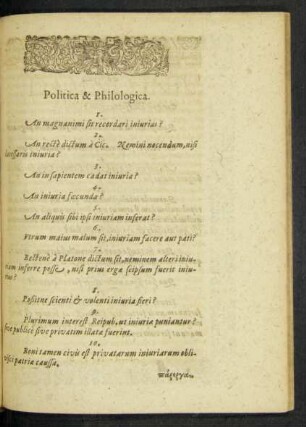 Politica & Philologica.
1.
An magnanimi sit recordari iniurias?
2.
An rectè dictum à Cic. Nemini nocendum, nisi
lacessitis iniuria?
3.
An in sapientem cadat iniuria?
4.
An iniuria fœcunda?
5.
An aliquis sibi ipsi iniuriam inferat?
6.
Vtrum maius malum sit, iniuriam facere aut pati?
7.
Rectene à Platone dictum sit, neminem alteri iniu-
riam inferre posse, nisi prius erga seipsum fuerit iniu-
8.
Possitne scienti & volenti iniuria fieri?
9.
Plurimum interest Reipub. ut iniuriæ puniantur?
sive publicè sive privatim illatæ fuerint.
10.
Boni tamen civis est privatarum iniuriarum obli-
visci patriæ caussa.
πάρεργα.